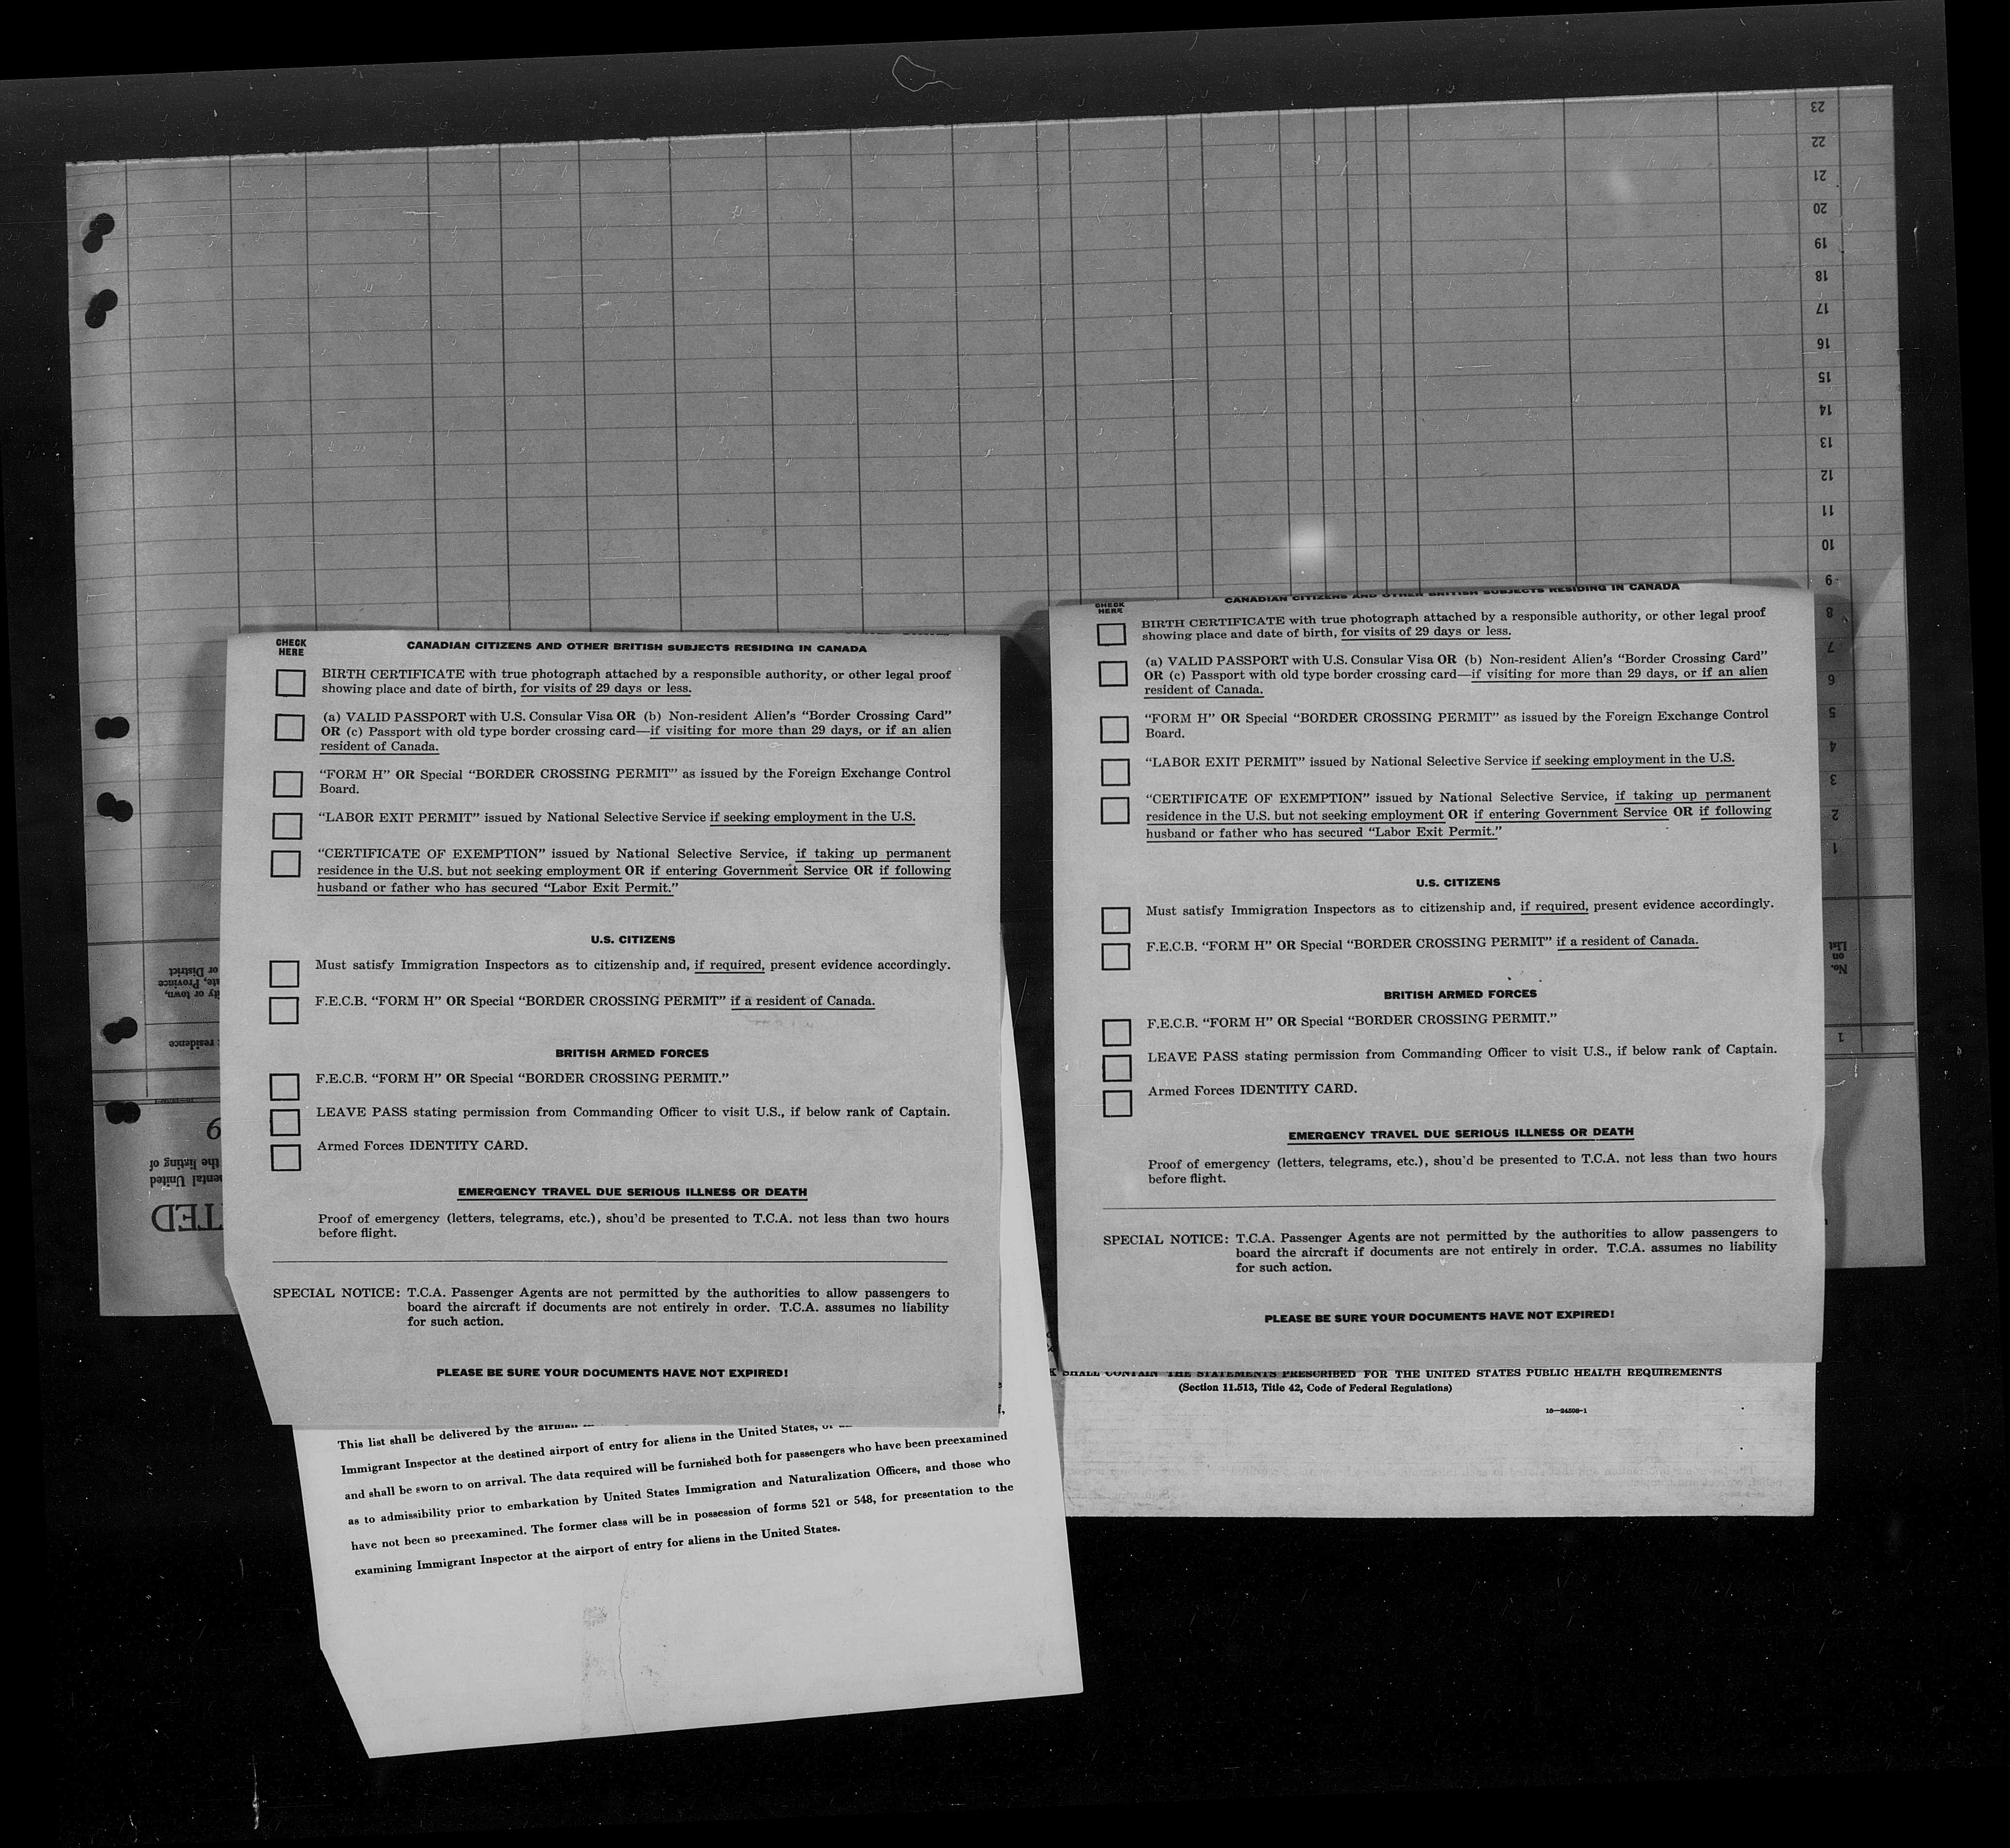 23
22
21
20
19
18
17
16
15
14
13
12
11
10
9
8
7
6
5
4
3
2
1
No.
on
List
1
CHECK
HERE
CANADIAN CITIZENS AND OTHER BRITISH SUBJECTS RESIDING IN CANADA
BIRTH CERTIFICATE with true photograph attached by a responsible authority, or other legal proof
showing place and date of birth, for visits of 29 days or less.
(a) VALID PASSPORT with U.S. Consular Visa OR (b) Non-resident Alien's "Border Crossing Card"
OR (c) Passport with old type border crossing card—if visiting for more than 29 days, or if an alien
resident of Canada.
"FORM H" OR Special "BORDER CROSSING PERMIT" as issued by the Foreign Exchange Control
Board.
"LABOR EXIT PERMIT" issued by National Selective Service if seeking employment in the U.S.
"CERTIFICATE OF EXEMPTION" issued by National Selective Service, if taking up permanent
residence in the U.S. but not seeking employment OR if entering Government Service OR if following
husband or father who has secured "Labor Exit Permit."
U.S. CITIZENS
Must satisfy Immigration Inspectors as to citizenship and, if required, present evidence accordingly.
F.E.C.B. "FORM H" OR Special "BORDER CROSSING PERMIT" if a resident of Canada.
BRITISH ARMED FORCES
F.E.C.B. "FORM H" OR Special "BORDER CROSSING PERMIT."
LEAVE PASS stating permission from Commanding Officer to visit U.S., if below rank of Captain.
Armed Forces IDENTITY CARD.
EMERGENCY TRAVEL DUE SERIOUS ILLNESS OR DEATH
Proof of emergency (letters, telegrams, etc.), shou'd be presented to T.C.A. not less than two hours
before flight.
SPECIAL NOTICE: T.C.A. Passenger Agents are not permitted by the authorities to allow passengers to
board the aircraft if documents are not entirely in order. T.C.A. assumes no liability
for such action.
PLEASE BE SURE YOUR DOCUMENTS HAVE NOT EXPIRED!
CHECK
HERE
CANADIAN CITIZENS AND OTHER BRITISH SUBJECTS RESIDING IN CANADA
BIRTH CERTIFICATE with true photograph attached by a responsible authority, or other legal proof
showing place and date of birth, for visits of 29 days or less.
(a) VALID PASSPORT with U.S. Consular Visa OR (b) Non-resident Alien's "Border Crossing Card"
OR (c) Passport with old type border crossing card—if visiting for more than 29 days, or if an alien
resident of Canada.
"FORM H" OR Special "BORDER CROSSING PERMIT" as issued by the Foreign Exchange Control
Board.
"LABOR EXIT PERMIT" issued by National Selective Service if seeking employment in the U.S.
"CERTIFICATE OF EXEMPTION" issued by National Selective Service, if taking up permanent
residence in the U.S. but not seeking employment OR if entering Government Service OR if following
husband or father who has secured "Labor Exit Permit."
U.S. CITIZENS
Must satisfy Immigration Inspectors as to citizenship and, if required, present evidence accordingly.
F.E.C.B. "FORM H" OR Special "BORDER CROSSING PERMIT" if a resident of Canada.
BRITISH ARMED FORCES
F.E.C.B. "FORM H" OR Special "BORDER CROSSING PERMIT."
LEAVE PASS stating permission from Commanding Officer to visit U.S., if below rank of Captain.
Armed Forces IDENTITY CARD.
EMERGENCY TRAVEL DUE SERIOUS ILLNESS OR DEATH
Proof of emergency (letters, telegrams, etc.), shou'd be presented to T.C.A. not less than two hours
before flight.
SPECIAL NOTICE: T.C.A. Passenger Agents are not permitted by the authorities to allow passengers to
board the aircraft if documents are not entirely in order. T.C.A. assumes no liability
for such action.
PLEASE BE SURE YOUR DOCUMENTS HAVE NOT EXPIRED!
TED
United
the listing of
residence
or town,
Province
or District
This list shall be delivered by the airman
Immigrant Inspector at the destined airport of entry for aliens in the United States,
and shall be sworn to on arrival. The data required will be furnished both for passengers who have been preexamined
as to admissibility prior to embarkation by United States Immigration and Naturalization Officers, and those who
have not been so preexamined. The former class will be in possession of forms 521 or 548, for presentation to the
examining Immigrant Inspector at the airport of entry for aliens in the United States.
SHALL CONTAIN THE STATEMENTS PRESCRIBED FOR THE UNITED STATES PUBLIC HEALTH REQUIREMENTS
(Section 11.513, Title 42, Code of Federal Regulations)
16—24598-1